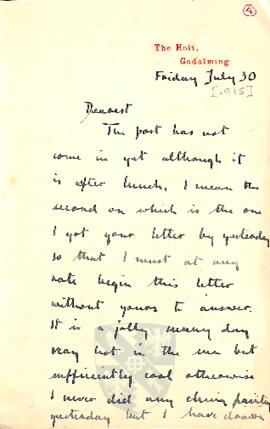 4
The Holt,
Godalming
Friday July 30
[1915]
Dearest
The post has not
come in yet although it
is after lunch, I mean the
second on which is the one
I got your letter by yesterday
so that I must at any
rate begin this letter
without yours to answer.
It is a jolly sunny day
very hot in the sun but
sufficiently cool otherwise
I never did any
yesterday but I have